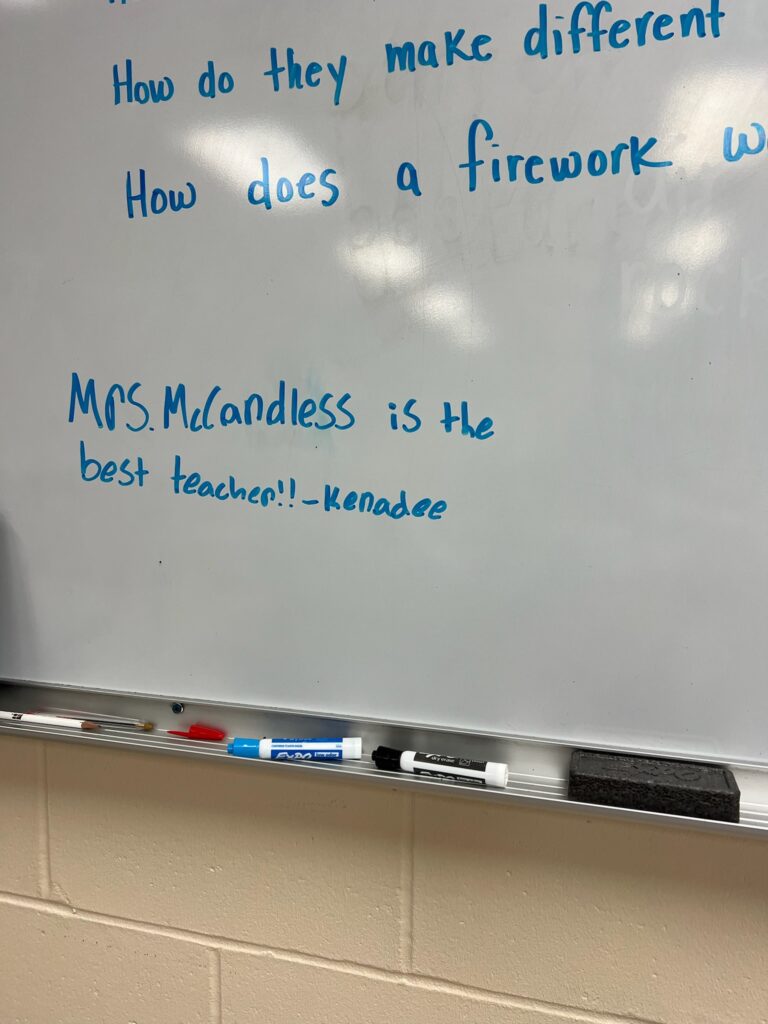 How do they make different
How does a firework
Mrs. McCandless is the
best teacher!! - Kenadee
EXPO
dry erase